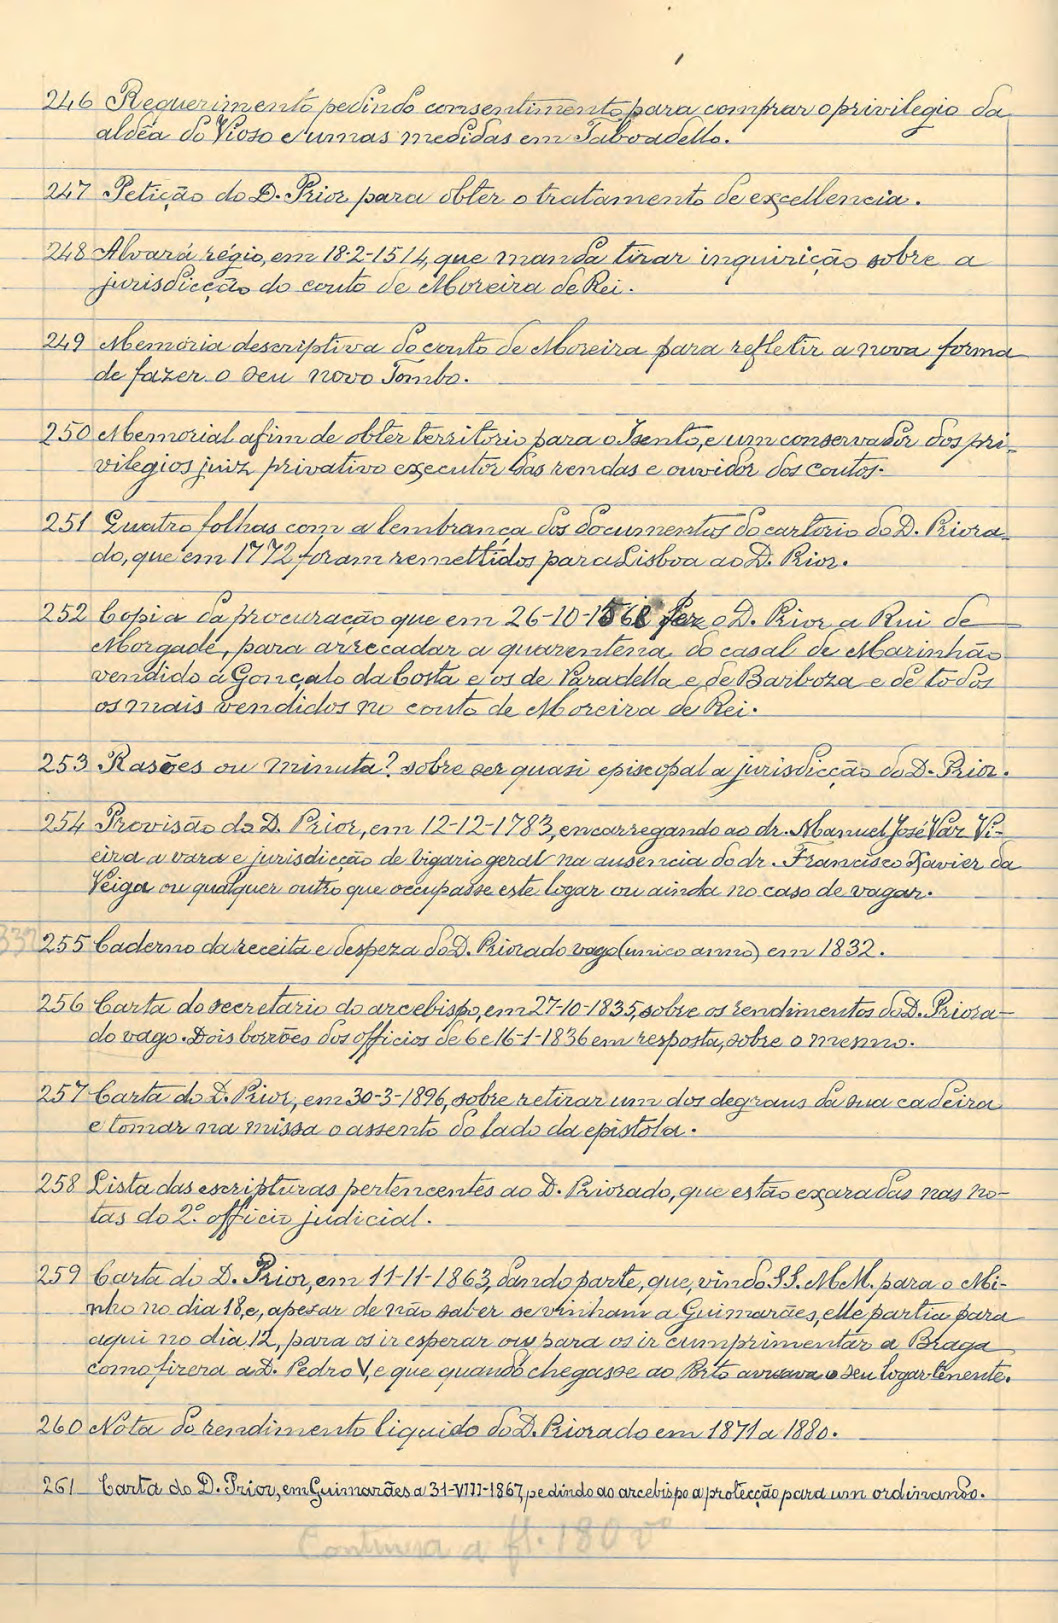 246 Requerimento pedindo consentimento para comprar o privilegio da
aldêa do Vioso e umas medidas em Taboadello.
247 Petição do D. Prior para obter o tratamento de excellencia.
248 Alvará régio, em 18-2-1514, que manda tirar inquirição sobre a
jurisdicção do couto de Moreira de Rei.
249 Memória descriptiva do couto de Moreira para refletir a nova forma
de fazer o seu novo Tombo.
250 Memorial afim de obter territorio para o Isento, e um conservador dos pri-
vilegios juiz privativo executor das rendas e ouvidor dos coutos.
251 Quatro folhas com a lembrança dos documentos do cartorio do D. Priora-
do, que em 1772 foram remettidos para Lisboa ao D. Prior.
252 Copia da procuração que em 26-10-1568 fez o D. Prior a Rui de
Morgade, para arrecadar a quarentena do casal de Marinhão
vendido a Gonçalo da Costa e os de Paradella e de Barboza e de todos
os mais vendidos no couto de Moreira de Rei.
253 Rasões ou minuta? sobre ser quasi episcopal a jurisdicção do D. Prior.
254 Provisão do D. Prior, em 12-12-1783, encarregando ao dr. Manuel José Vaz Vi-
eira a vara e jurisdicção de vigario geral na ausencia do dr. Francisco Xavier da
Veiga ou qualquer outro que occupasse este logar ou ainda no caso de vagar.
255 Caderno da receita e despeza do D. Priorado vago (unico anno) em 1832.
256 Carta do secretario do arcebispo, em 27-10-1835, sobre os rendimentos do D. Priora-
do vago. Dois borrões dos officios de 6 e 16-1-1836 em resposta, sobre o mesmo.
257 Carta do D. Prior, em 30-3-1896, sobre retirar um dos degraus da sua cadeira
e tomar na missa o assento do lado da epistola.
258 Lista das escripturas pertencentes ao D. Priorado, que estão exaradas nas no-
tas do 2.º officio judicial.
259 Carta do D. Prior, em 11-11-1863, dando parte, que, vindo S.S. M.M. para o Mi-
nho no dia 18, e, apesar de não saber se vinham a Guimarães, elle partia para
aqui no dia 12, para os ir esperar ou para os ir cumprimentar a Braga
como fizera a D. Pedro V, e que quando chegasse ao Porto avisava o seu logar-tenente.
260 Nota do rendimento liquido do D. Priorado em 1871 a 1880.
261 Carta do D. Prior, em Guimarães a 31-VIII-1867, pedindo ao arcebispo a protecção para um ordinando.
Continua a fl. 180 vº